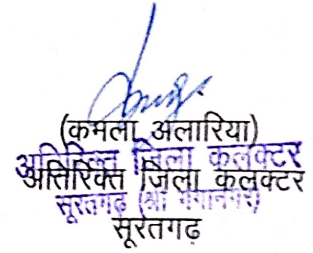 (कमला अलारिया)
अतिरिक्त जिला कलक्टर
अतिरिक्त जिला कलक्टर
सूरतगढ़ (श्री गंगानगर)
सूरतगढ़